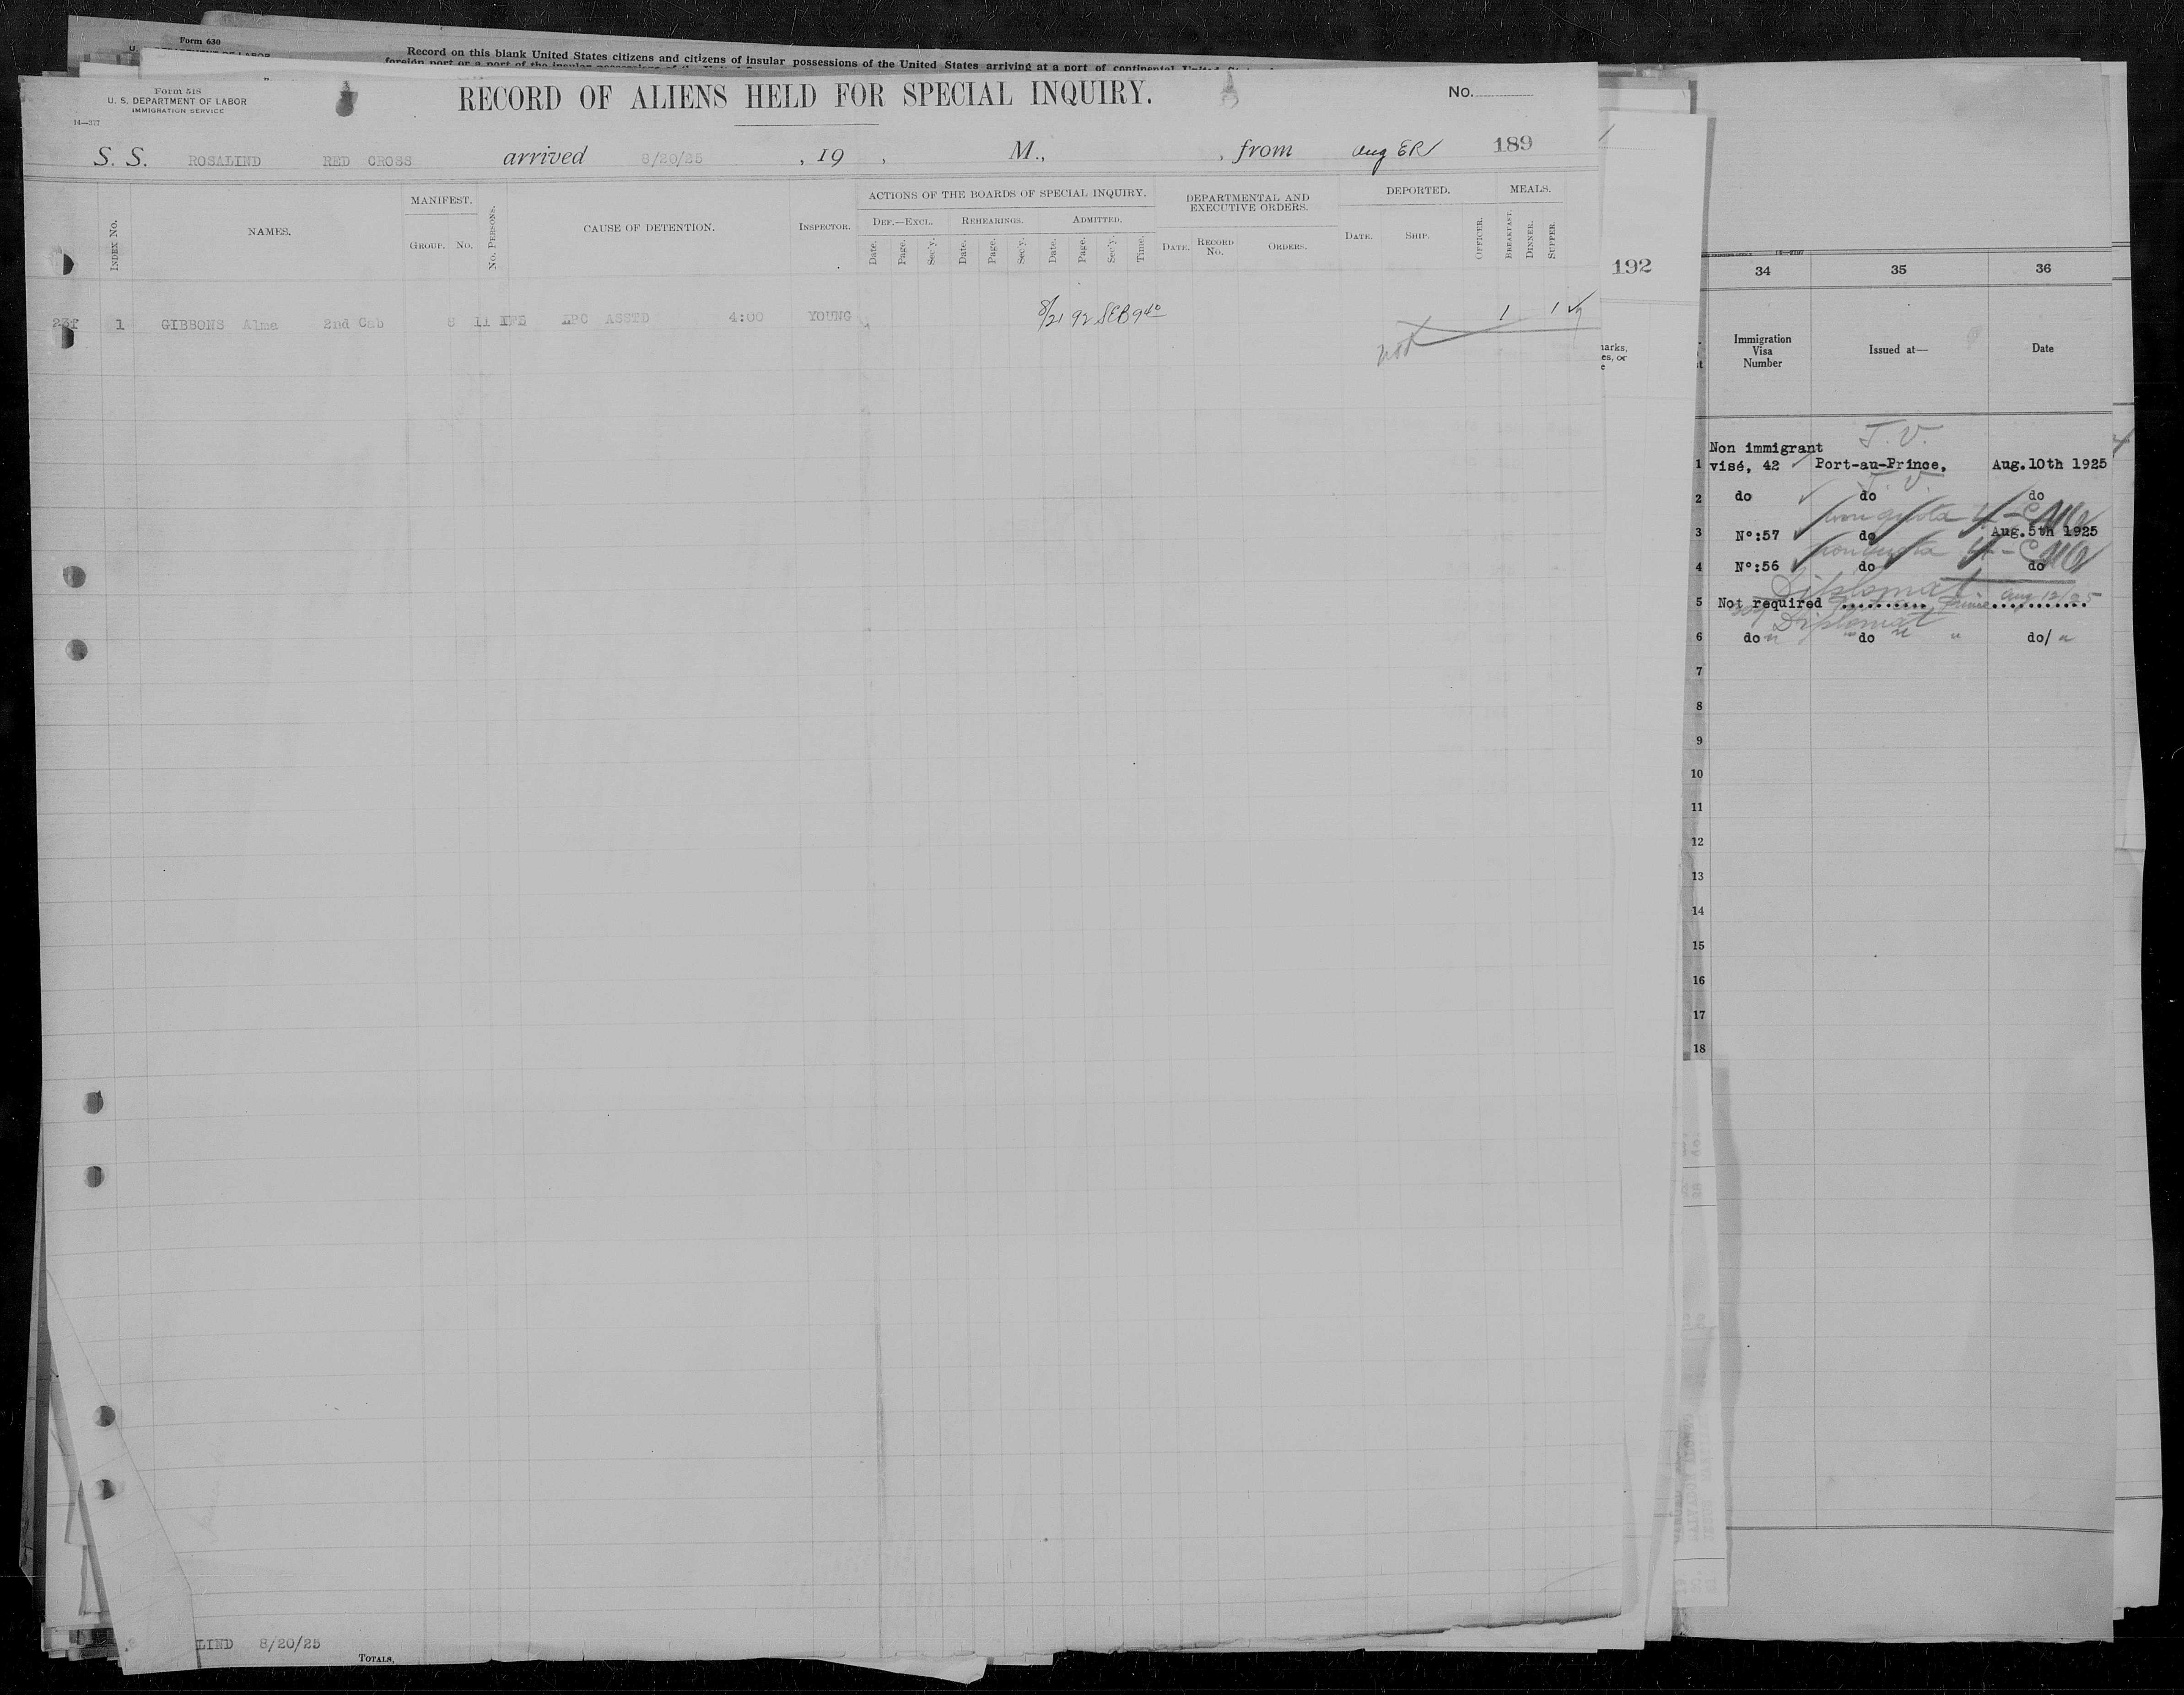 Form 630
Record on this blank United States citizens and citizens of insular possessions of the United States arriving at a port of continental
Form 518
U. S. DEPARTMENT OF LABOR
IMMIGRATION SERVICE
14—377
RECORD OF ALIENS HELD FOR SPECIAL INQUIRY.
No.
S. S. ROSALIND RED CROSS arrived 8/20/25 , 19 , M., , from 189
INDEX No.
NAMES.
MANIFEST.
GROUP. No.
No. PERSONS.
CAUSE OF DETENTION.
INSPECTOR.
ACTIONS OF THE BOARDS OF SPECIAL INQUIRY.
DEF.—EXCL. REHEARINGS. ADMITTED.
Date. Page. Sec'y. Date. Page. Sec'y. Date. Page. Sec'y. Time.
DEPARTMENTAL AND
EXECUTIVE ORDERS.
DATE. RECORD No. ORDERS.
DEPORTED.
DATE. SHIP. OFFICER.
MEALS.
BREAKFAST. DINNER. SUPPER.
23f 1 GIBBONS Alma 2nd Cab 8 11 LPC ASSTD 4:00 YOUNG 8/21 92 SEB 9 40 1 1
not
LIND 8/20/25
TOTALS,
192
34 35 36
Immigration
Visa
Number
Issued at—
Date
Non immigrant T. V.
1 visé, 42 Port-au-Prince, Aug.10th 1925
T. V.
2 do do do
non quota 4-C
3 N°:57 do Aug.5th 1925
non quota 4-C
4 N°:56 do do
Diplomat
5 Not required .......... Prince ............ Aug 12/25
Diplomat
6 do " do " " do/ "
7
8
9
10
11
12
13
14
15
16
17
18